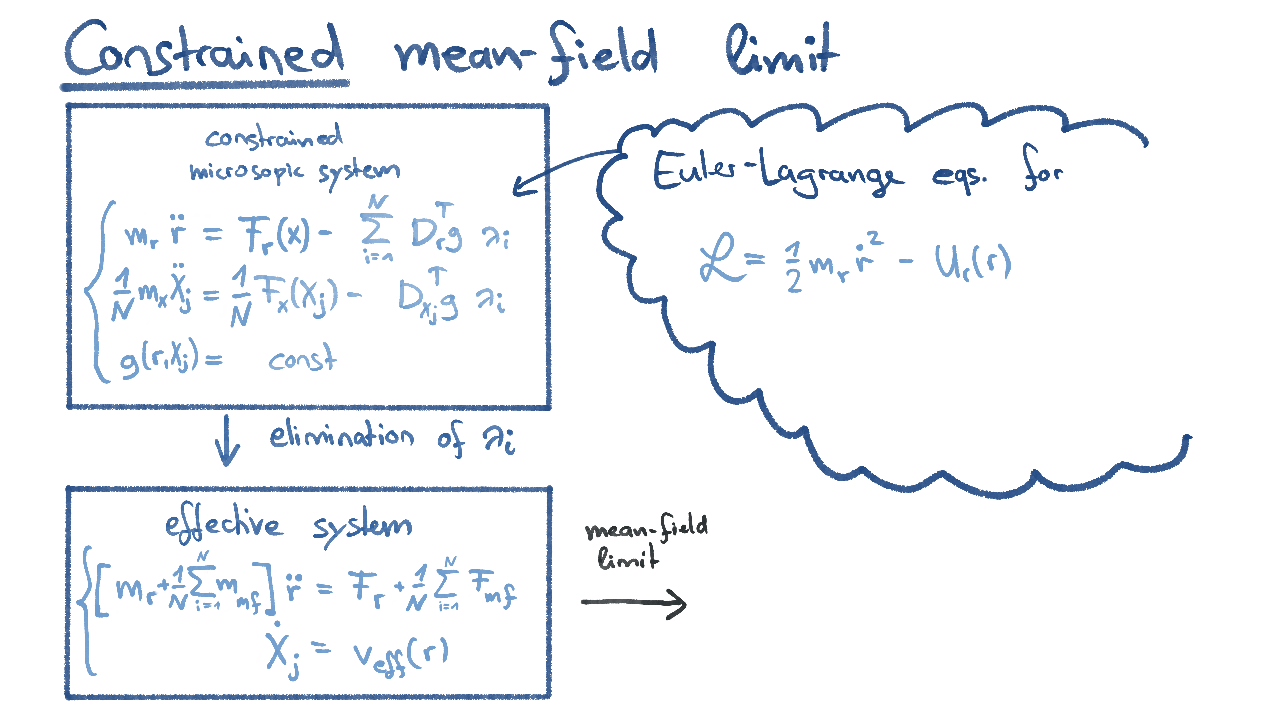 Constrained mean-field limit
constrained
microsopic system
m_r r̈ = F_r(x) - ∑_{i=1}^{N} D_r^T g λ_i
1/N m_x Ẍ_j = 1/N F_x(X_j) - D_{X_j}^T g λ_i
g(r, X_j) = const
Euler-Lagrange eqs. for
ℒ = 1/2 m_r ṙ² - U_r(r)
↓ elimination of λ_i
effective system
[m_r + 1/N ∑_{i=1}^{N} m_{mf}] r̈ = F_r + 1/N ∑_{i=1}^{N} F_{mf}
Ẋ_j = v_{eff}(r)
mean-field
limit